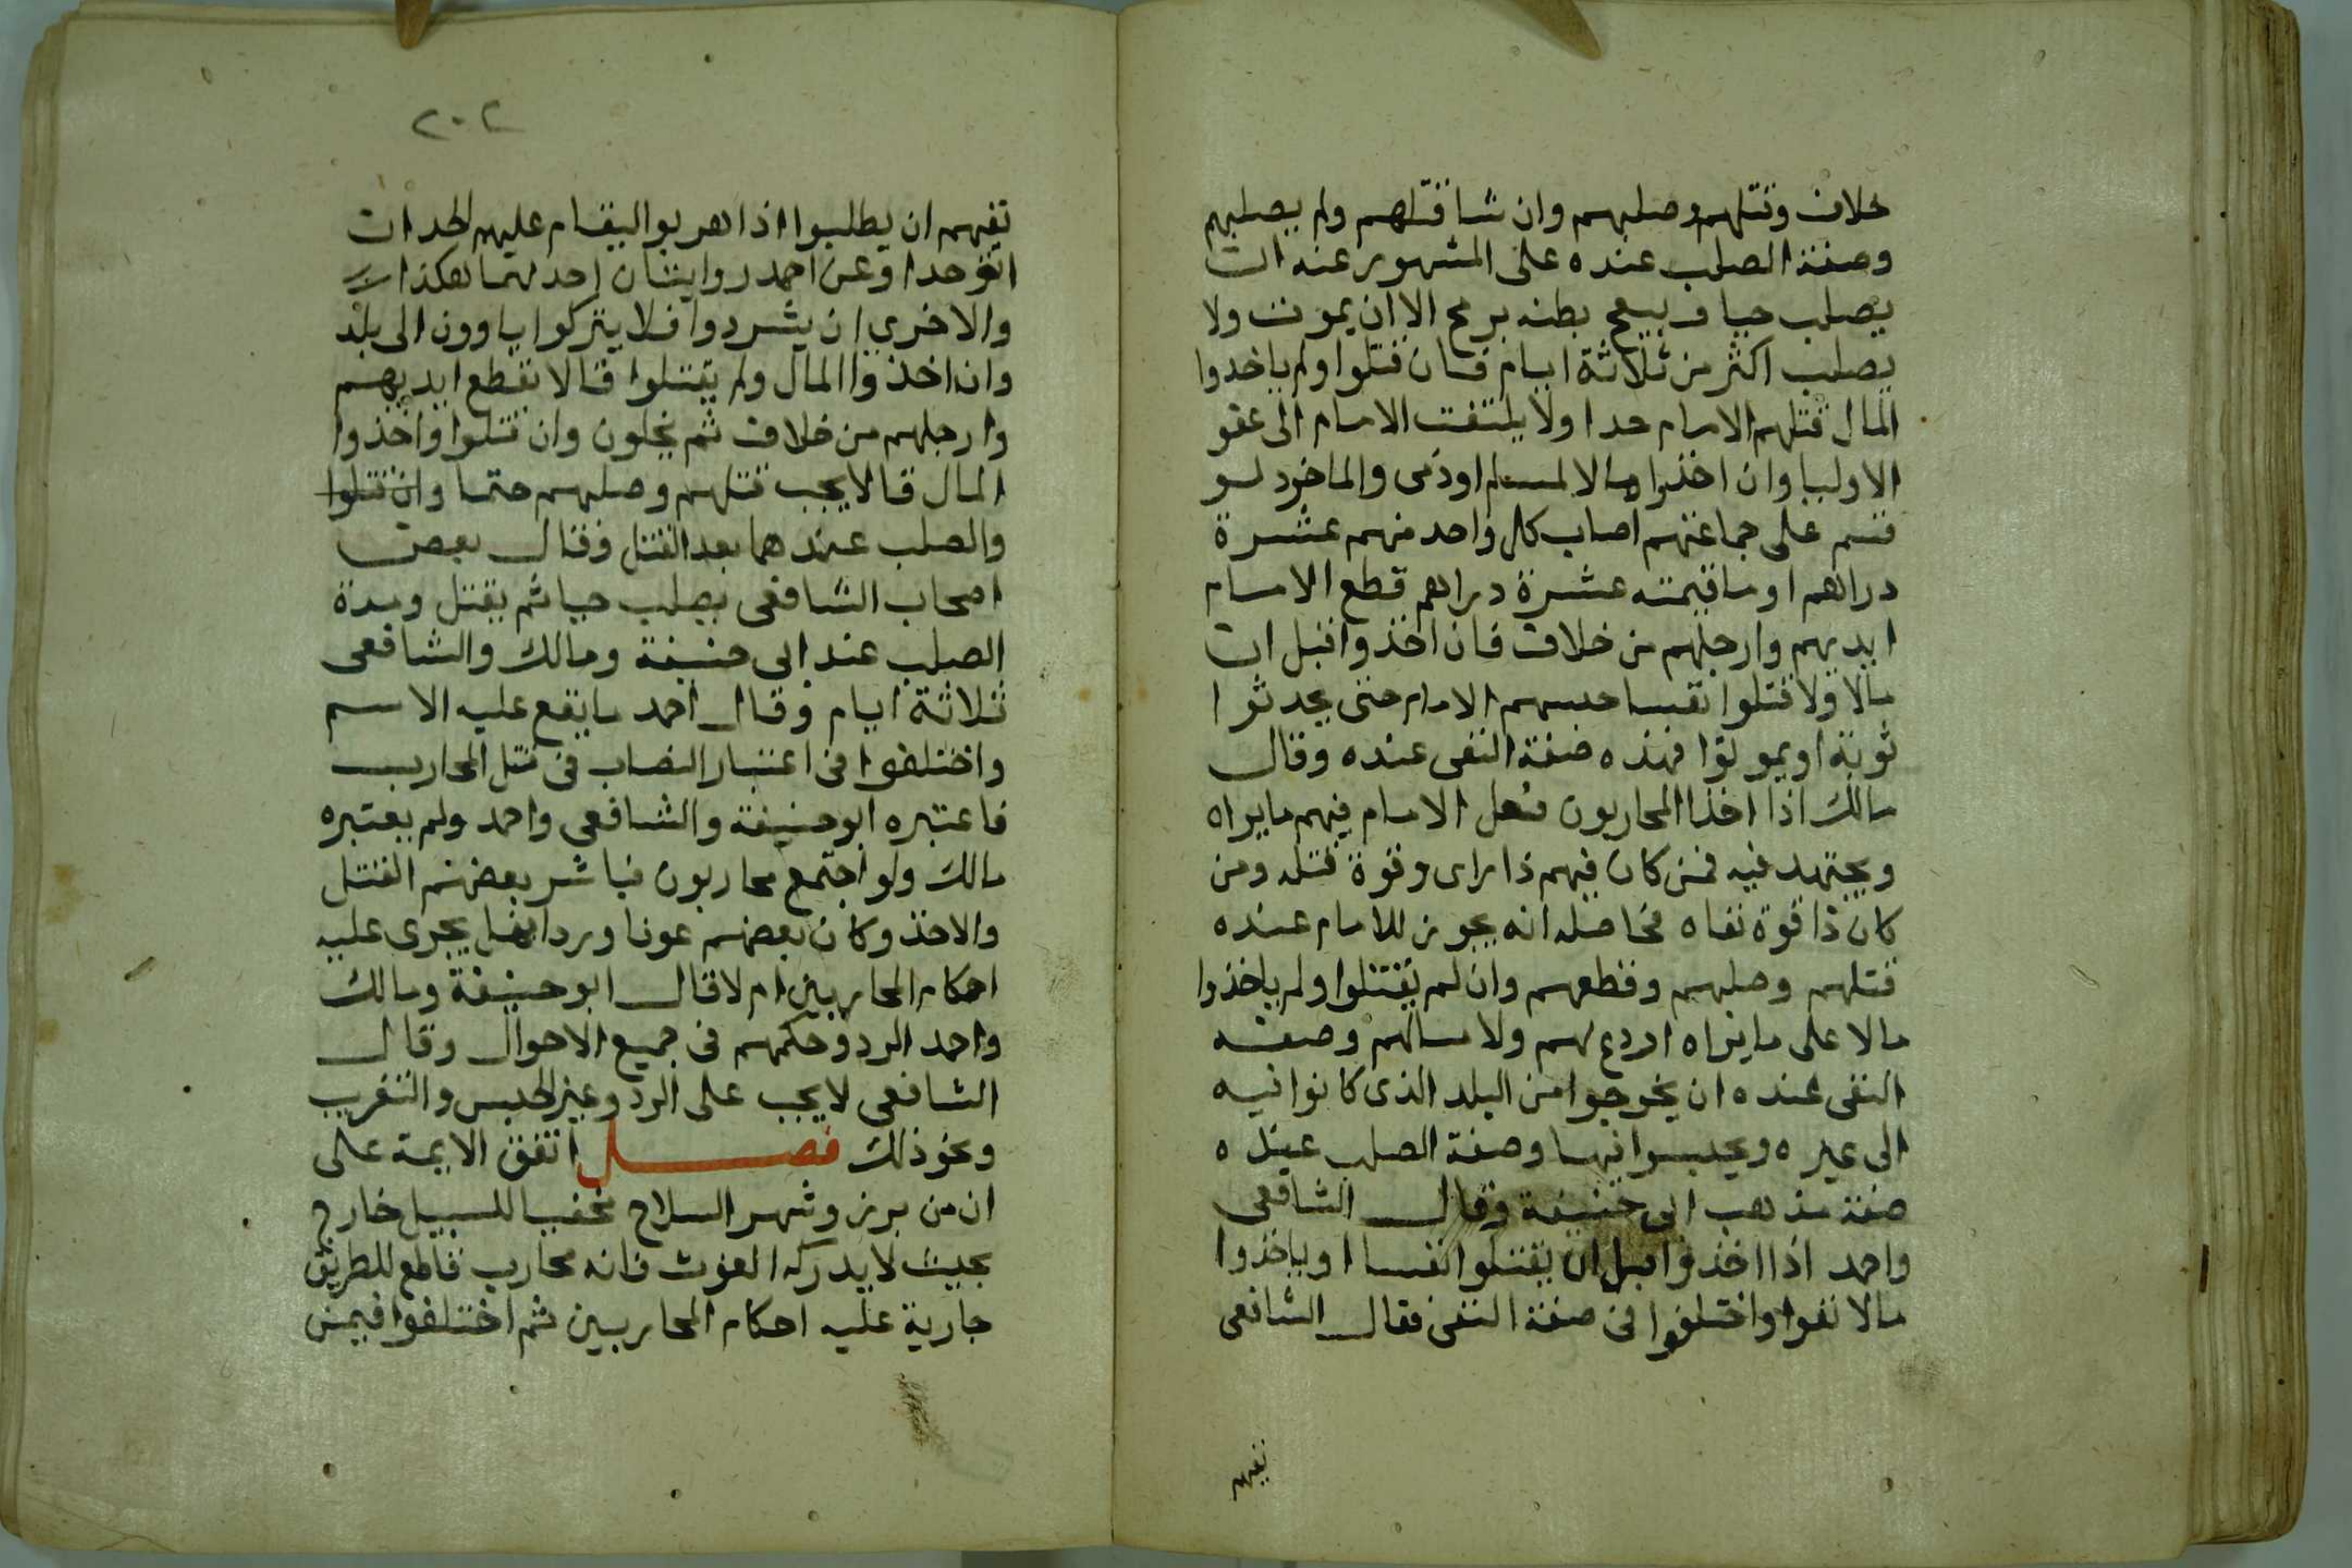 خلاف وقتلهم وصلبهم وان شا قتلهم ولم يصلبهم
وصفة الصلب عنده على المشهور عنه ان
يصلب حيا ف يبعج بطنه برمح الا ان يموت ولا
يصلب اكثر من ثلاثة ايام فان قتلوا ولم ياخدوا
المال قتلهم الامام حدا ولا يلتفت الامام الى عفو
الاوليا وان اخذوا مالا لمسلم اوذمى والماخود لو
قسم على جماعتهم اصاب كل واحد منهم عشرة
دراهم او ما قيمته عشرة دراهم قطع الامام
ايديهم وارجلهم من خلاف فان اخذوا قبل ان
مالا ولا قتلوا نفسا حبسهم الامام حتى يحدثوا
ثوبة او يموتوا فهذه صفة النفى عنده وقال
مالك اذا اخذ المحاربون فعل الامام فيهم مايراه
ويجتهد فيه فمن كان فيهم ذا راى وقوة قتله ومن
كان ذا قوة نفاه فحاصله انه يجوز للامام عنده
قتلهم وصلبهم وقطعهم وان لم يقتلوا ولم ياخذوا
مالا على مايراه اردع لهم ولامسالهم وصفه
النفى عنده ان يخرجوا من البلد الذى كانوا فيه
الى غيره ويحبسوا فيها وصفة الصلب عنده
صفة مذهب ابى حنيفة وقال الشافعى
واحمد اذا اخذوا قبل ان يقتلوا نفسا اوياخذوا
مالا نفوا واختلفوا فى صفة النفى فقال الشافعى
نفيهم
٢٠٢
نفيهم ان يطلبوا اذا هربوا ليقام عليهم الحد ان
اتوا حدا وعن احمد روايتان احدهما هكذا
والاخرى ان يشردوا فلا يتركوا ياوون الى بلد
وان اخذوا المال ولم يقتلوا قالا تقطع ايديهم
وارجلهم من خلاف ثم يخلون وان قتلوا واخذوا
المال قالا يجب قتلهم وصلبهم حتما وان قتلوا
والصلب عندهما بعد القتل وقال بعض
اصحاب الشافعى يصلب حيا ثم يقتل ومدة
الصلب عند ابى حنيفة ومالك والشافعى
ثلاثة ايام وقال احمد ما يقع عليه الاسم
واختلفوا فى اعتبار النصاب فى قتل المحارب
فاعتبره ابو حنيفة والشافعى واحمد ولم يعتبره
مالك ولو اجتمع محاربون فباشر بعضهم القتل
والاخذ وكان بعضهم عونا وردا هل يجرى عليه
احكام المحاربين ام لا قال ابو حنيفة ومالك
واحمد الرد وحكمهم فى جميع الاحوال وقال
الشافعى لايجب على الرد وغير الحبس والتغريب
ونحو ذلك فصل اتفق الايمة على
ان من برز وشهر السلاح مخفيا للسبيل خارج
بحيث لا يدركه الغوث فانه محارب قاطع للطريق
جارية عليه احكام المحاربين ثم اختلفوا فيمن